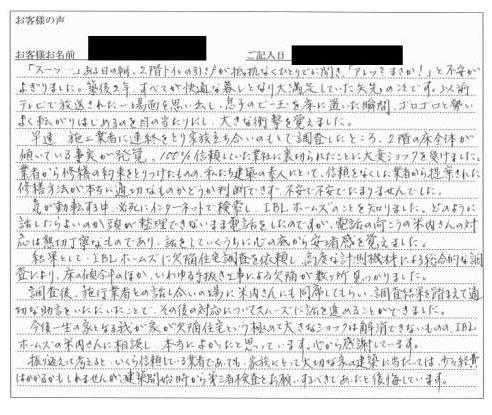 お客様の声
お客様お名前 ご記入日
「スーッ…」ある日の朝、2階トイレの引き戸が抵抗なくひとりでに開き、「アレッ?まさか!」と不安が
よぎりました。築後2年、すべてが快適な暮しとなり大満足していた矢先のことです。以前
テレビで放送された一場面を思い出し、息子のビー玉を床に置いた瞬間、ゴロゴロと勢い
よく転がりはじめるのを目の当りにし、大きな衝撃を覚えました。
早速、施工業者に連絡をとり家族立ち会いのもとで調査したところ、2階の床全体が
傾いている事実が発覚。100%信頼していた業者に裏切られたことに大変ショックを受けました。
業者から修繕の約束をとりつけたものの、私たち建築の素人にとって、信頼をなくした業者から提案された
修繕方法が本当に適切なものかどうか判断できず、不安で不安でたまりませんでした。
気が動転する中、必死にインターネットで検索し、IBLホームズのことを知りました。どのように
話したらよいのか頭が整理できないまま電話をしたのですが、電話の向こうの米内さんの対
応は懇切丁寧なものであり、話をしていくうちに心の底から安堵感を覚えました。
結果として、IBLホームズに欠陥住宅調査を依頼し、高度な計測機材による総合的な調
査により、床の傾きのほか、いわゆる手抜き工事による欠陥が数ヶ所見つかりました。
調査後、施行業者との話し合いの場に米内さんにも同席してもらい、調査結果を踏まえて適
切な助言をいただいたことで、その後の対応についてスムーズに話を進めることができました。
今後一生の家となる我が家が欠陥住宅という極めて大きなショックは解消できないものの、IBL
ホームズの米内さんに相談し、本当によかったと思っています。心から感謝しています。
振り返って考えると、いくら信頼している業者であっても、家族にとって大切な家の建築に当たっては、少々経費
はかかるかもしれませんが、建築開始時から第三者検査をお願いするべきであったと後悔しています。